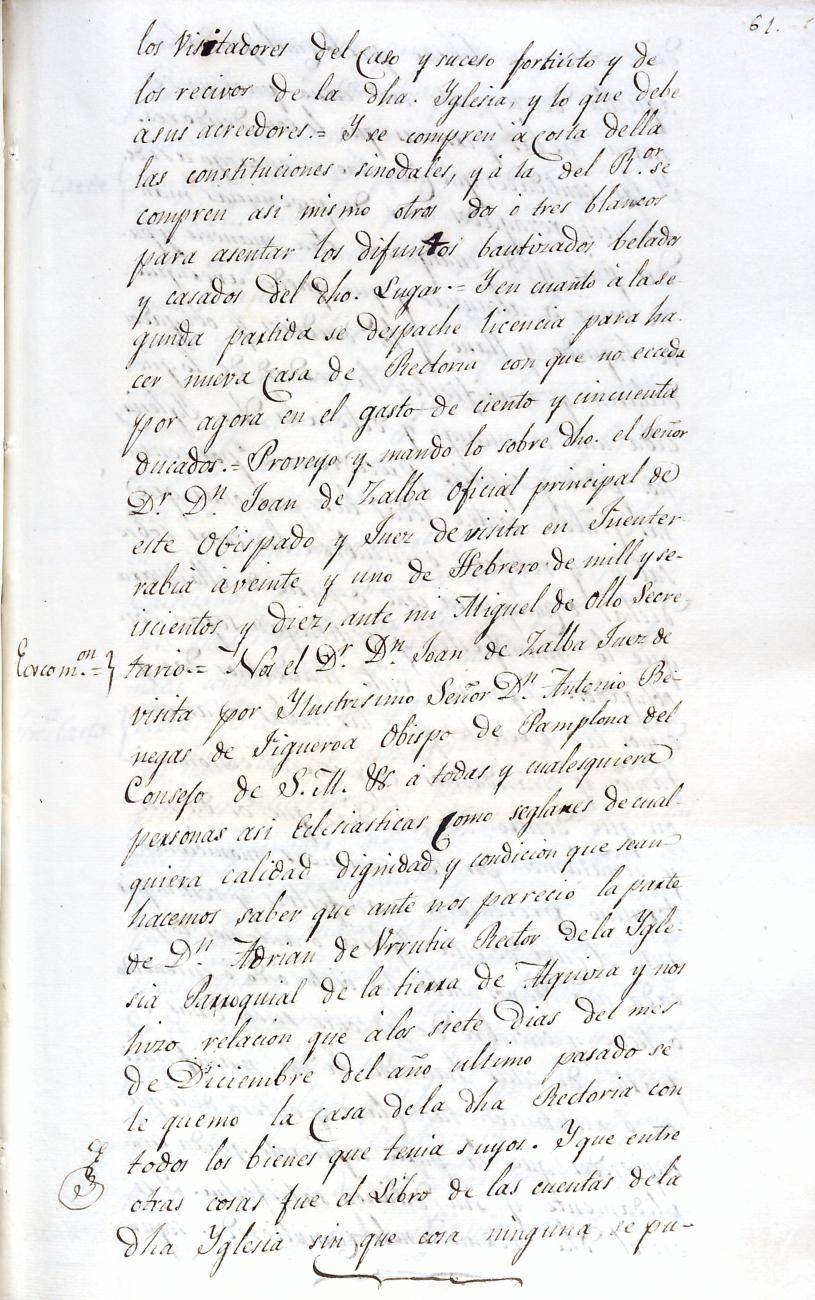 61.
los Visitadores del Caso y suceso fortuito y de
los recivos de la dha. Yglesia, y lo que debe
à sus acreedores.= Y se compren à costa della
las constituciones sinodales, y à la del R.or se
compren asi mismo otros dos ò tres blancos
para asentar los difuntos bautizados belados
y casados del dho. Lugar.= Y en cuanto à la se-
gunda partida se despache licencia para ha-
cer nueva Casa de Rectoria con que no ecceda
por agora en el gasto de ciento y cincuenta
ducados.= Proveyo y mando lo sobre dho. el Señor
Dr Dn. Joan de Zalba Oficial principal de
este Obispado y Juez de visita en Fuenter-
rabia à veinte y uno de Hebrero de mill y se-
iscientos y diez, ante mi Miguel de Ollo Secre-
Excom.on=} tario.= Nos el Dr. Dn. Joan de Zalba Juez de
visita por Ylustrisimo Señor Dn. Antonio Be-
negas de Figueroa Obispo de Pamplona del
Consejo de S. M. &c à todas y cualesquiera
personas asi Eclesiasticas Como seglares de cual-
quiera calidad dignidad y condicion que sean
hacemos saber que ante nos pareciò la parte
de Dn. Adrian de Vrrutia Rector de la Ygle-
sia Parroquial de la tierra de Alquiza y nos
hizo relacion que à los siete dias del mes
de Diciembre del año ultimo pasado se
le quemo la Casa de la dha Rectoria con
todos los bienes que tenia suyos. Y que entre
otras cosas fue el Libro de las cuentas de la
dha Yglesia sin que cosa ninguna se pu-